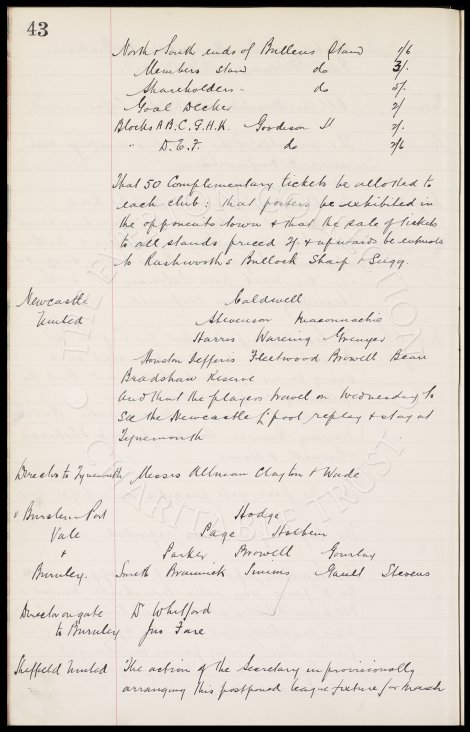 43
North & South ends of Bullens Stand 2/6
Members stand do 3/.
Shareholders - do 5/.
Goal Decker 2/
Blocks A.B.C.G.H.K. Goodison Sd 2/.
" D.E.F. do 2/6
That 50 Complimentary tickets be allotted to
each club; that posters be exhibited in
the opponents town & that the sale of tickets
to all stands priced 2/. & upwards be entrusted
to Rushworths Bullock Sharp & Sugg.
Newcastle United
Caldwell
Stevenson Maconnachie
Harris Wareing Grenyer
Houston Jefferis Fleetwood Browell Beare
Bradshaw Reserve
And that the players travel on Wednesday to
see the Newcastle L'pool replay & stay at
Tynemouth
Director to Tynemouth Messrs Allman Clayton & Wade
v Burslem Port
Vale
&
Burnley.
Hodge
Page Holbem
Parker Browell Gourlay
Smith Brannick Simms Gault Stevens
Director on gate
to Burnley
Dr Whitford
Jno Fare
Sheffield United
The action of the Secretary in provisionally
arranging this postponed league fixture for March
THE EVERTON COLLECTION
CHARITABLE TRUST